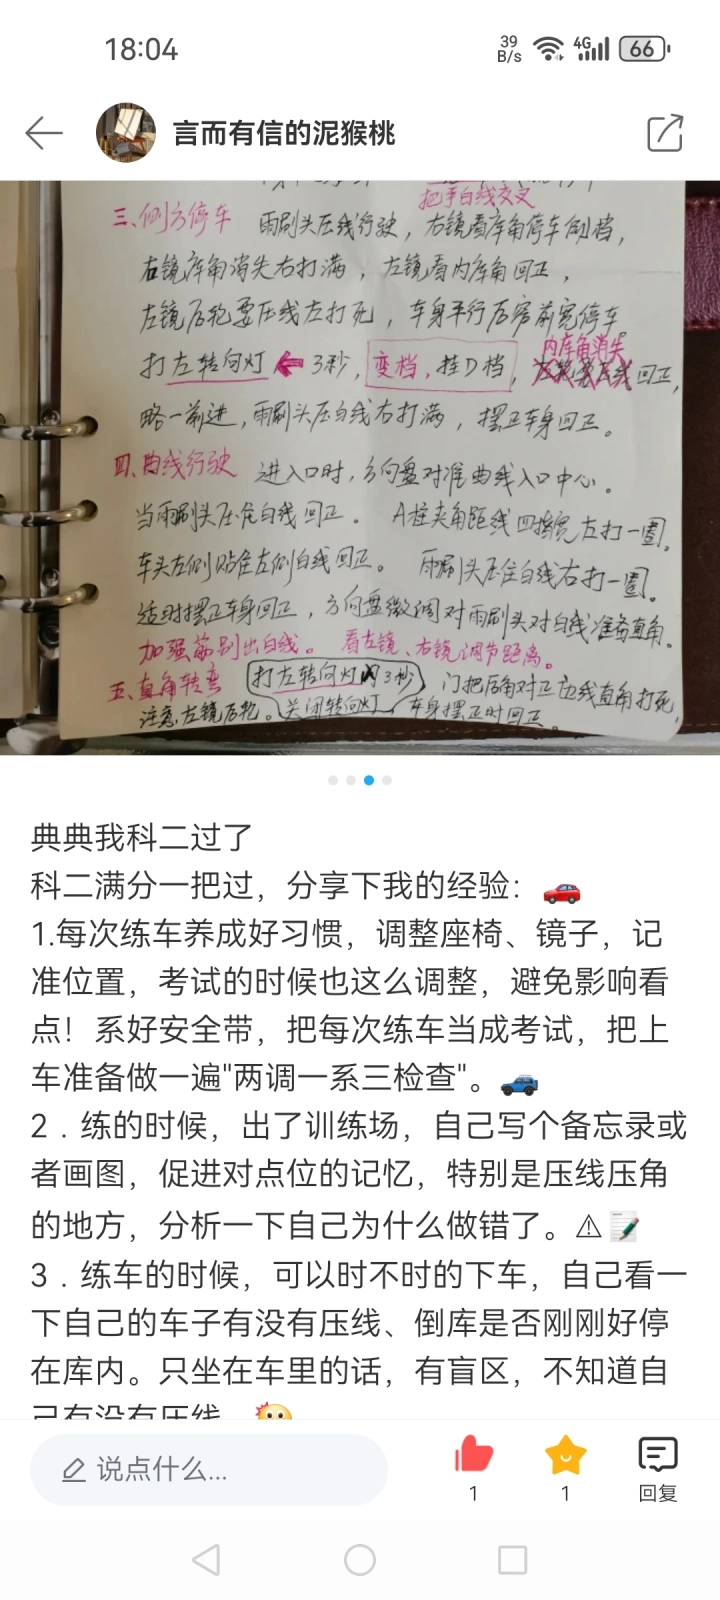 18:04
39
B/s
4G
66
言而有信的泥猴桃
把手白线交叉
三、侧方停车 雨刷头压线行驶，右镜看库角停车倒档，
右镜库角消失右打满，左镜看内库角回正，
左镜后轮要压线左打死，车身平行后穿前宽停车
内库角消失
打左转向灯 ← 3秒，变档，挂D档，回正，
略一前进，雨刷头压白线右打满，摆正车身回正。
四、曲线行驶 进入口时，方向盘对准曲线入口中心。
当雨刷头压住白线回正。 A柱夹角距线四指宽左打一圈。
车头左侧贴住左侧白线回正。 雨刷头压住白线右打一圈。
适时摆正车身回正，方向盘微调对雨刷头对白线准备直角。
加强筋别出白线。 看左镜、右镜调节距离。
五、直角转弯 打左转向灯 3秒 门把后角对正边线直角打死，
注意左镜后轮。关闭转向灯 车身摆正时回正。
典典我科二过了
科二满分一把过，分享下我的经验：🚗
1.每次练车养成好习惯，调整座椅、镜子，记
准位置，考试的时候也这么调整，避免影响看
点！系好安全带，把每次练车当成考试，把上
车准备做一遍"两调一系三检查"。🚙
2．练的时候，出了训练场，自己写个备忘录或
者画图，促进对点位的记忆，特别是压线压角
的地方，分析一下自己为什么做错了。⚠📝
3．练车的时候，可以时不时的下车，自己看一
下自己的车子有没有压线、倒库是否刚刚好停
在库内。只坐在车里的话，有盲区，不知道自
己有没有压线
说点什么...
1
1
回复